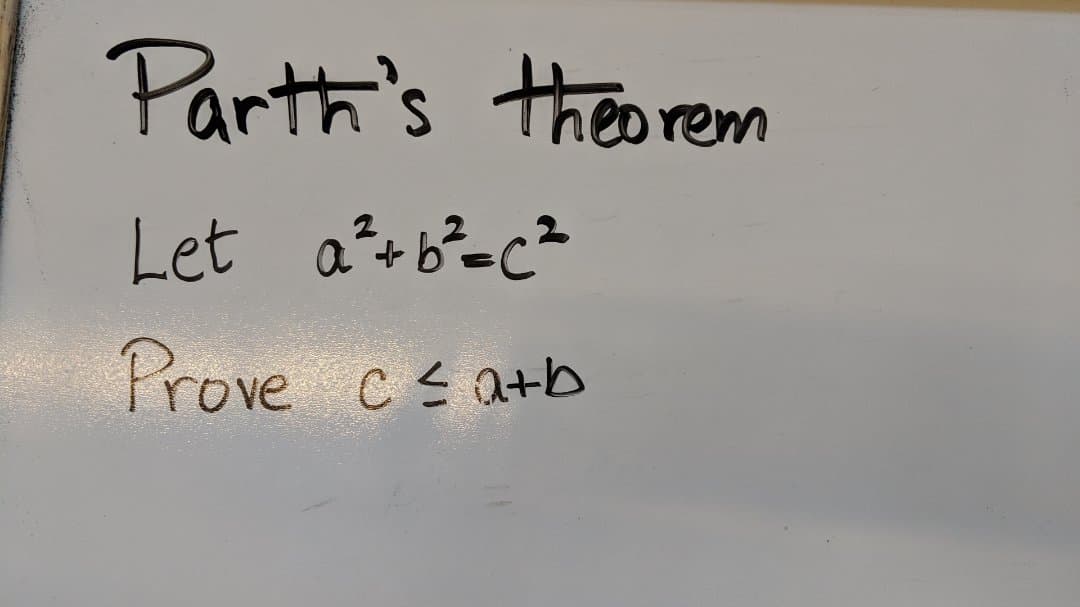 Parth's theorem
Let a²+b²=c²
Prove c ≤ a+b